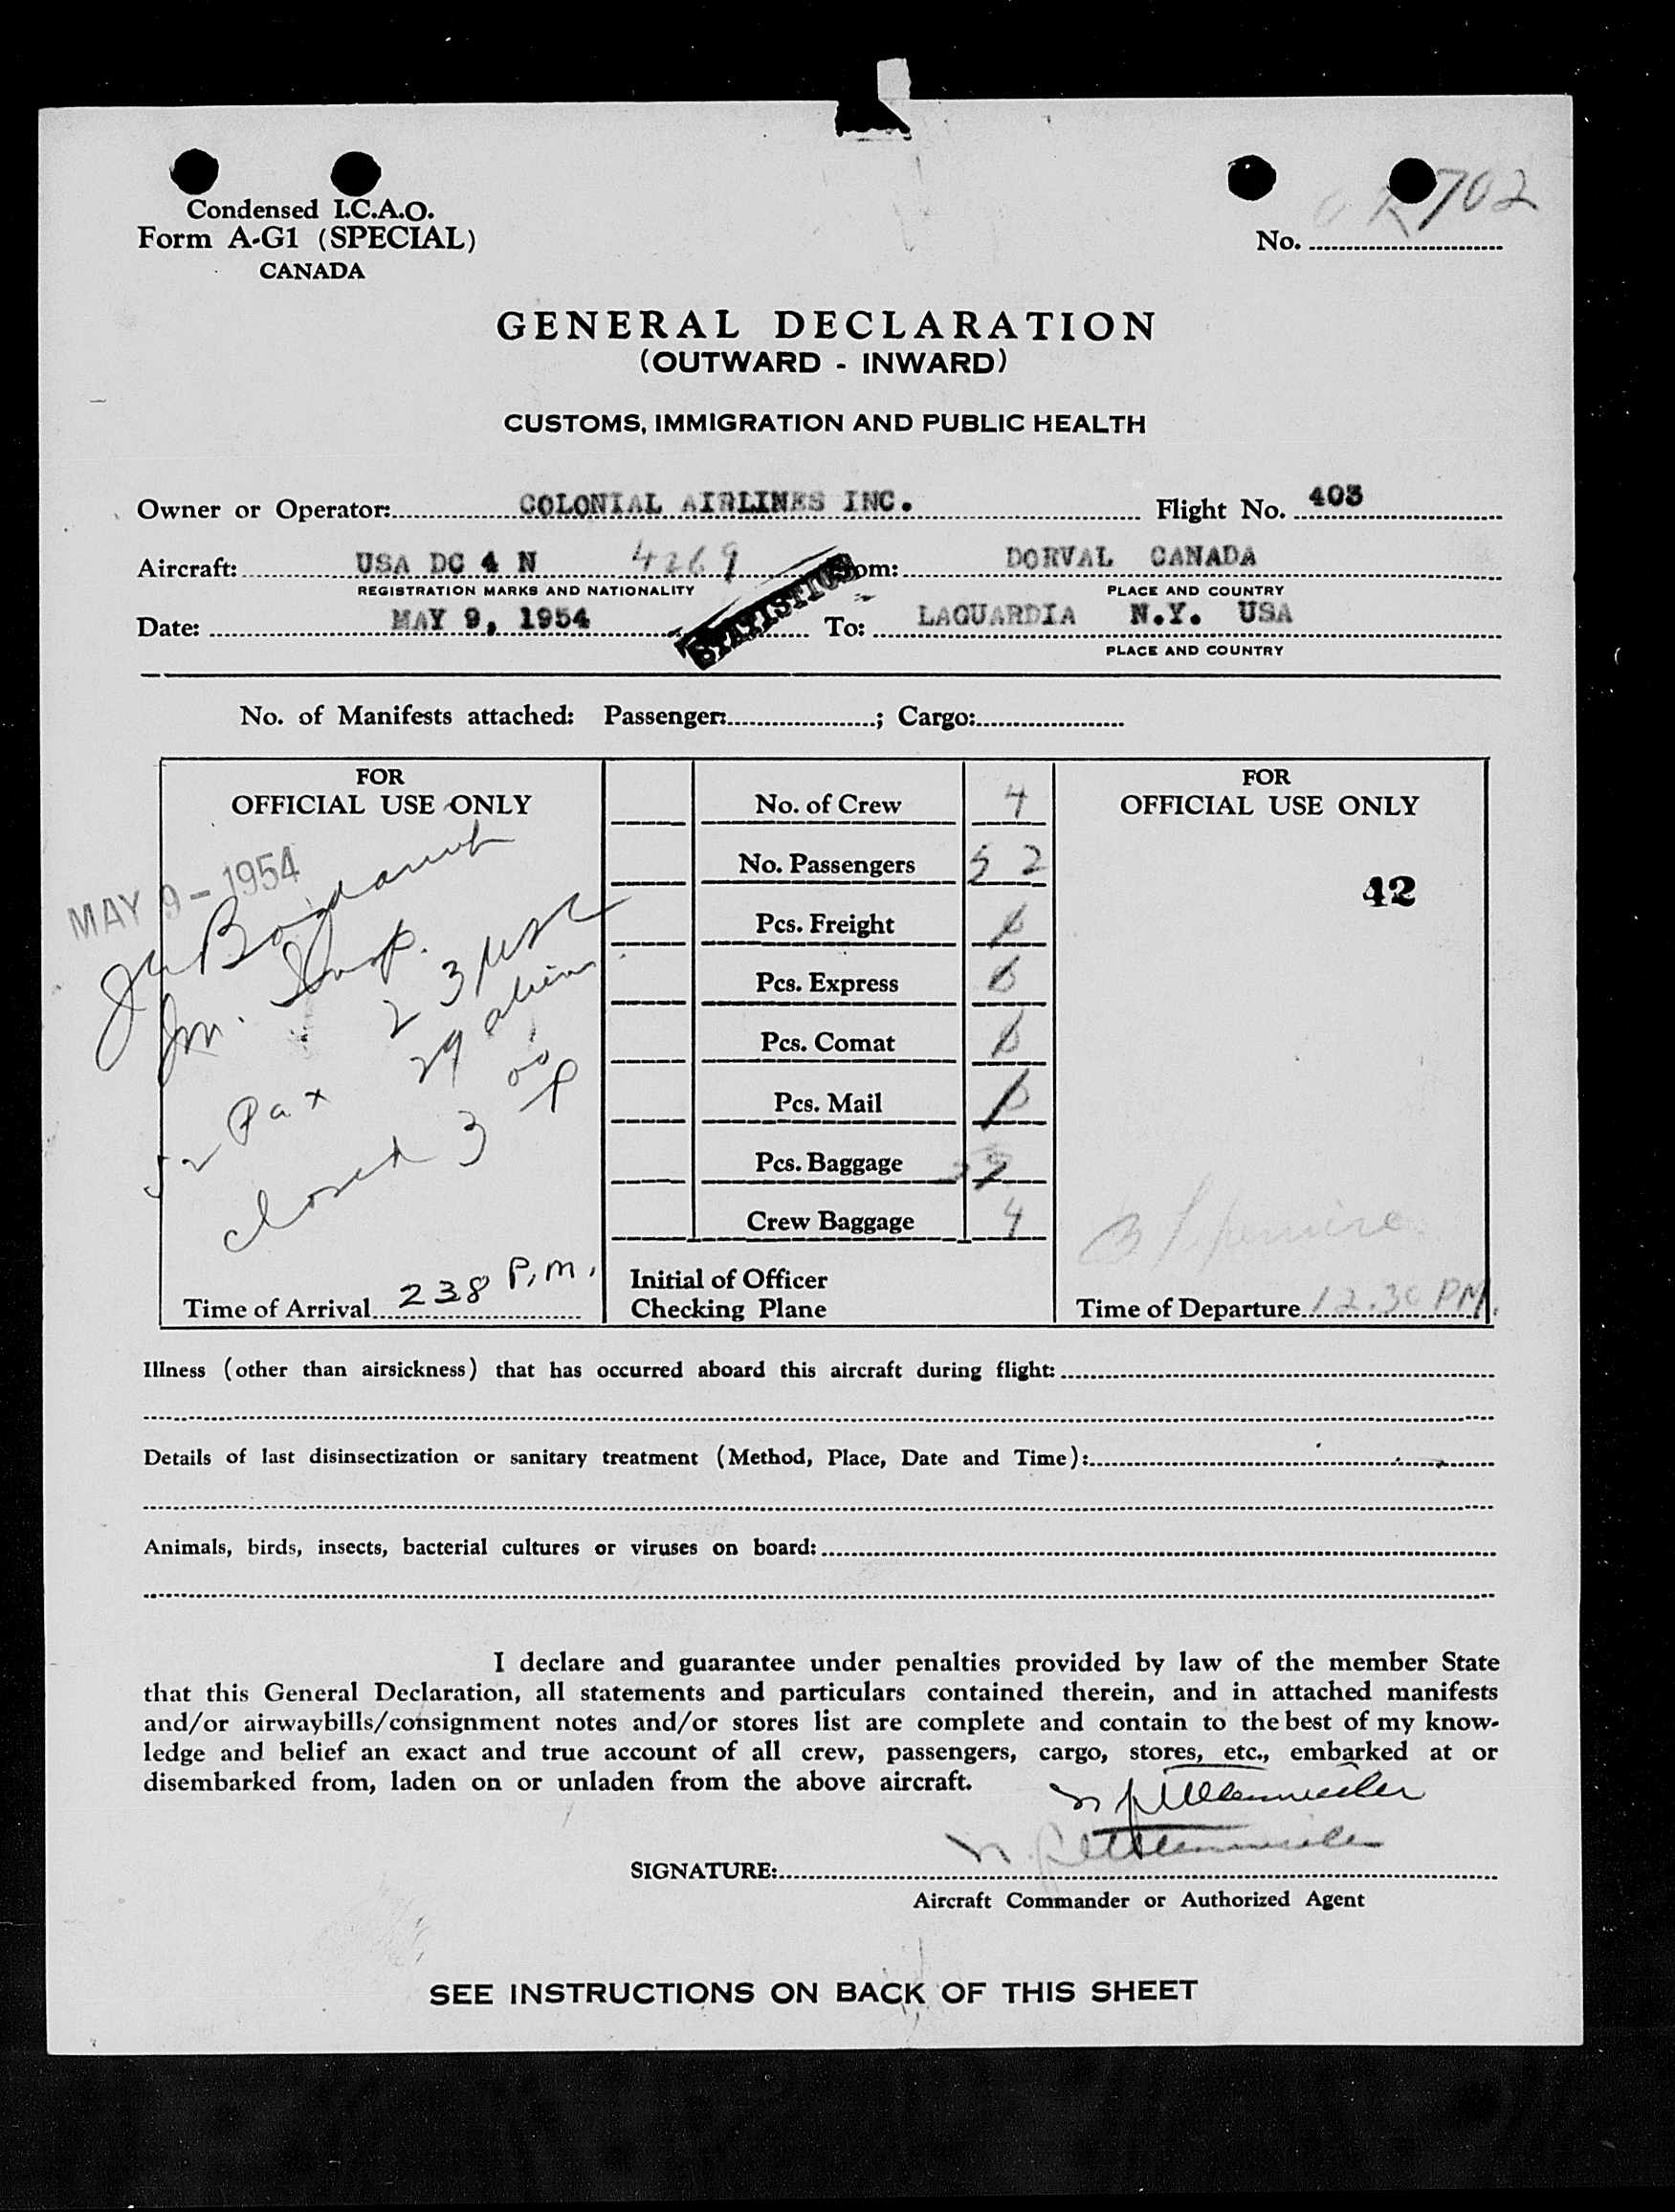 Condensed I.C.A.O.
Form A-G1 (SPECIAL)
CANADA
702
No.
GENERAL DECLARATION
(OUTWARD - INWARD)
CUSTOMS, IMMIGRATION AND PUBLIC HEALTH
Owner or Operator: COLONIAL AIRLINES INC. Flight No. 403
Aircraft: USA DC 4 N 4269 om: DORVAL CANADA
REGISTRATION MARKS AND NATIONALITY PLACE AND COUNTRY
STATISTICS
Date: MAY 9, 1954 To: LAGUARDIA N.Y. USA
PLACE AND COUNTRY
No. of Manifests attached: Passenger: ; Cargo:
FOR
OFFICIAL USE ONLY
MAY 9 - 1954
Im. Insp.
23 USC
29 aliens
52 Pax
closed 3 00 P
Time of Arrival 238 P.M.
No. of Crew 4
No. Passengers 52
Pcs. Freight
Pcs. Express
Pcs. Comat
Pcs. Mail
Pcs. Baggage
Crew Baggage 4
Initial of Officer
Checking Plane
FOR
OFFICIAL USE ONLY
42
Time of Departure 12.30 PM.
Illness (other than airsickness) that has occurred aboard this aircraft during flight:
Details of last disinsectization or sanitary treatment (Method, Place, Date and Time):
Animals, birds, insects, bacterial cultures or viruses on board:
I declare and guarantee under penalties provided by law of the member State
that this General Declaration, all statements and particulars contained therein, and in attached manifests
and/or airwaybills/consignment notes and/or stores list are complete and contain to the best of my know-
ledge and belief an exact and true account of all crew, passengers, cargo, stores, etc., embarked at or
disembarked from, laden on or unladen from the above aircraft.
SIGNATURE:
Aircraft Commander or Authorized Agent
SEE INSTRUCTIONS ON BACK OF THIS SHEET